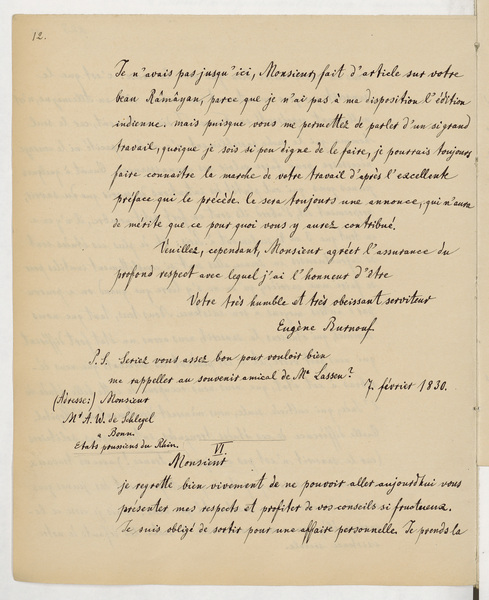 12.
Je n'avais pas jusqu'ici, Monsieur, fait d'article sur votre
beau Râmâyan, parce que je n'ai pas à ma disposition l'édition
indienne. mais puisque vous me permettez de parler d'un si grand
travail, quoique je sois si peu digne de le faire, je pourrais toujours
faire connaître la marche de votre travail d'après l'excellente
préface qui le précède. Ce sera toujours une annonce, qui n'aura
de mérite que ce pour quoi vous y aurez contribué.
Veuillez, cependant, Monsieur agréer l'assurance du
profond respect avec lequel j'ai l'honneur d'être
Votre très humble et très obeissant serviteur
Eugène Burnouf
P.S. Seriez vous assez bon pour vouloir bien
me rappeller au souvenir amical de Mr Lassen?
7. février 1830.
(Adresse:) Monsieur
Mr A. W. de Schlegel
a Bonn.
Etats prussiens du Rhin.
VI
Monsieur
je regrette bien vivement de ne pouvoir aller aujourd'hui vous
présenter mes respects et profiter de vos conseils si fructueux.
Je suis obligé de sortir pour une affaire personnelle. Je prends la